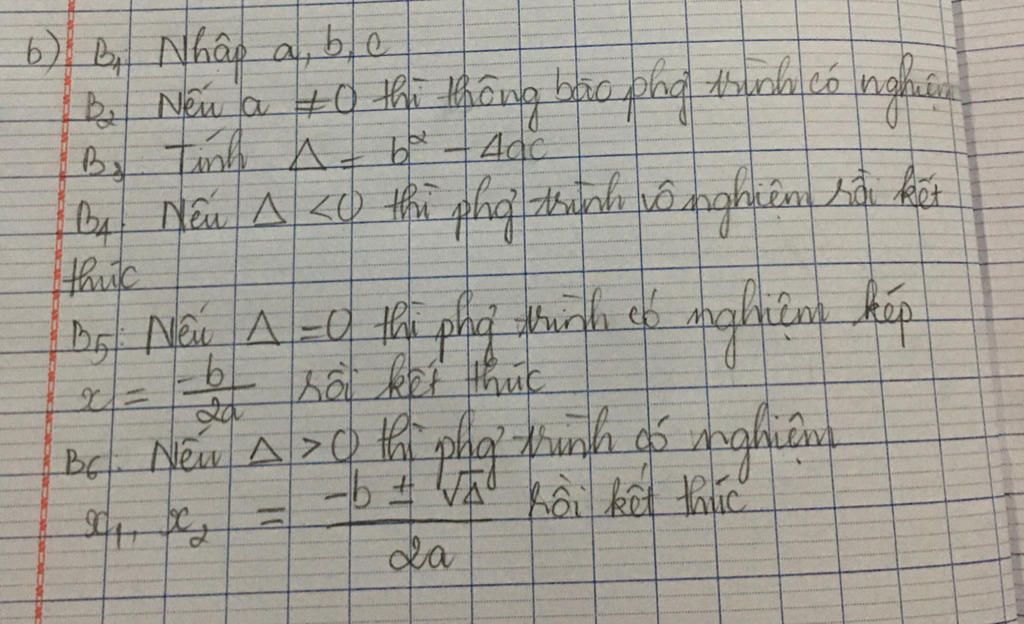 b) B1: Nhập a, b, c
B2 Nếu a ≠ 0 thì thông báo phg trình có nghiệm
B3 Tính Δ = b² - 4ac
B4: Nếu Δ < 0 thì phg trình vô nghiệm rồi kết
thúc
B5: Nếu Δ = 0 thì phg trình có nghiệm kép
x = -b/2a rồi kết thúc
B6: Nếu Δ > 0 thì phg trình có nghiệm
x1, x2 = (-b ± √Δ)/2a rồi kết thúc